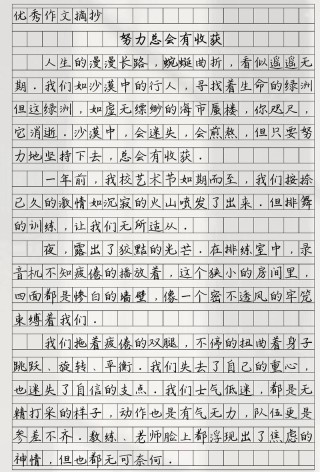 优秀作文摘抄
努力总会有收获
人生的漫漫长路，蜿蜒曲折，看似遥遥无
期．我们如沙漠中的行人，寻找着生命的绿洲
但这绿洲，如虚无缥缈的海市蜃楼，你咫尺，
它消逝．沙漠中，会迷失，会煎熬，但只要努
力地坚持下去，总会有收获．
一年前，我校艺术节如期而至，我们按捺
已久的激情如沉寂的火山喷发了出来．但排舞
的训练，让我们无所适从．
夜，露出了狡黠的光芒．在排练室中，录
音机不知疲倦的播放着，这个狭小的房间里，
四面都是惨白的墙壁，像一个密不透风的牢笼
束缚着我们．
我们拖着疲倦的双腿，不停的扭曲着身子
跳跃、旋转、平衡．我们失去了自己的重心，
也迷失了自信的支点．我们士气低迷，都是无
精打采的样子，动作也是有气无力，队伍更是
参差不齐．教练、老师脸上都浮现出了焦虑的
神情，但也都无可奈何．